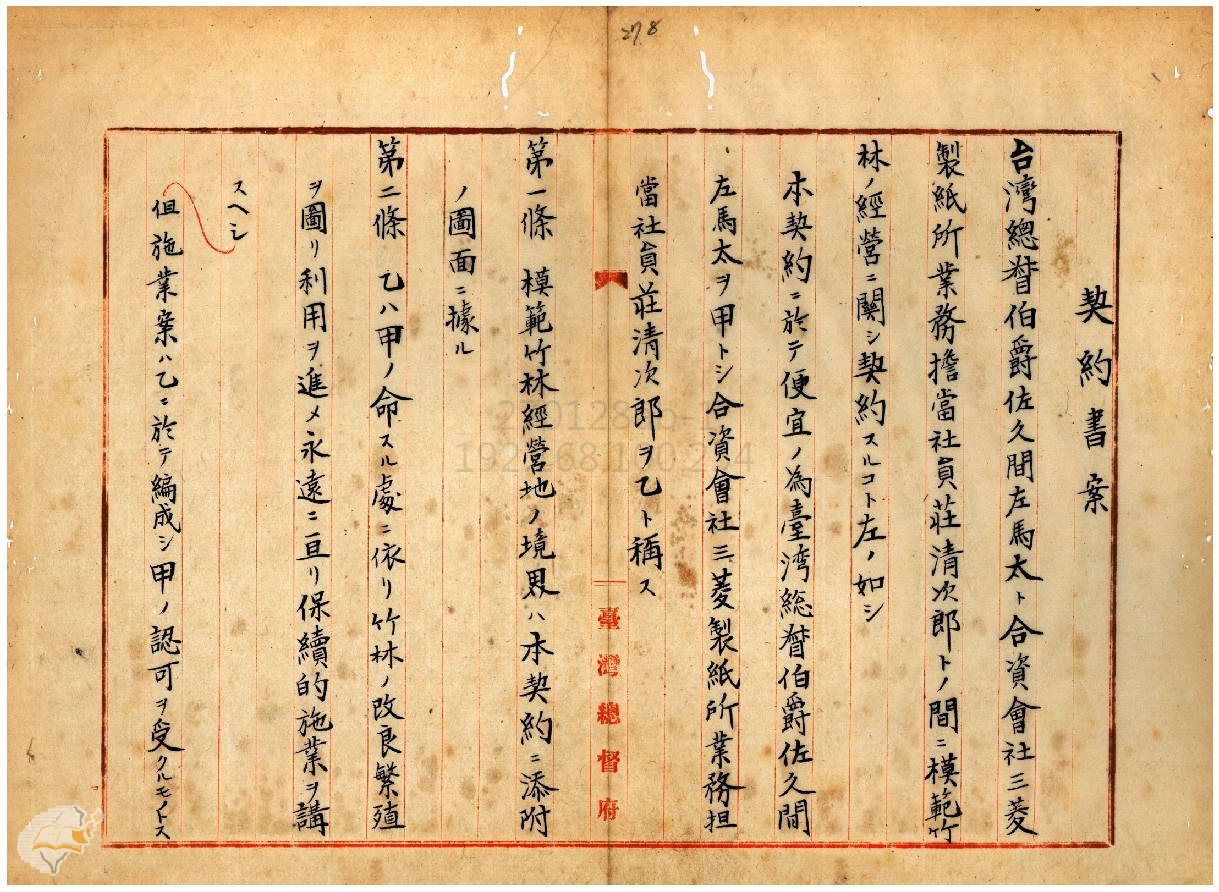 契約書案
台湾總督伯爵佐久間左馬太ト合資會社三菱
製紙所業務擔當社員荘清次郎トノ間ニ模範竹
林ノ經營ニ関シ契約スルコト左ノ如シ
本契約ニ於テ便宜ノ為臺湾総督伯爵佐久間
左馬太ヲ甲トシ合資會社三菱製紙所業務担
當社員荘清次郎ヲ乙ト稱ス
第一條 模範竹林經營地ノ境界ハ本契約ニ添附
ノ圖面ニ據ル
第二條 乙ハ甲ノ命スル處ニ依リ竹林ノ改良繁殖
ヲ圖リ利用ヲ進メ永遠ニ亘リ保續的施業ヲ講
スヘシ
但施業案ハ乙ニ於テ編成シ甲ノ認可ヲ受クルモノトス
臺灣總督府
278